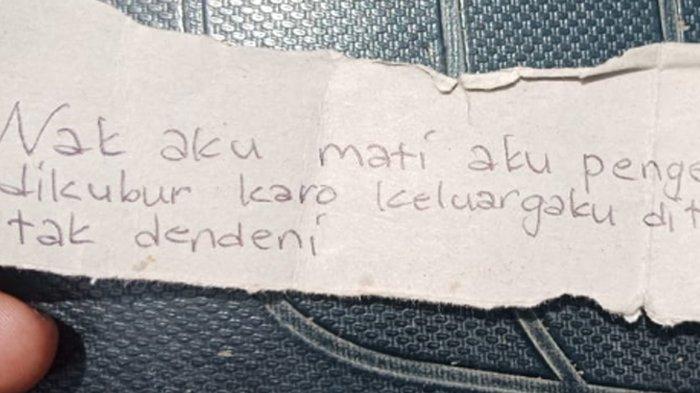 Nak aku mati aku penge
dikubur karo keluargaku dit
tak dendeni